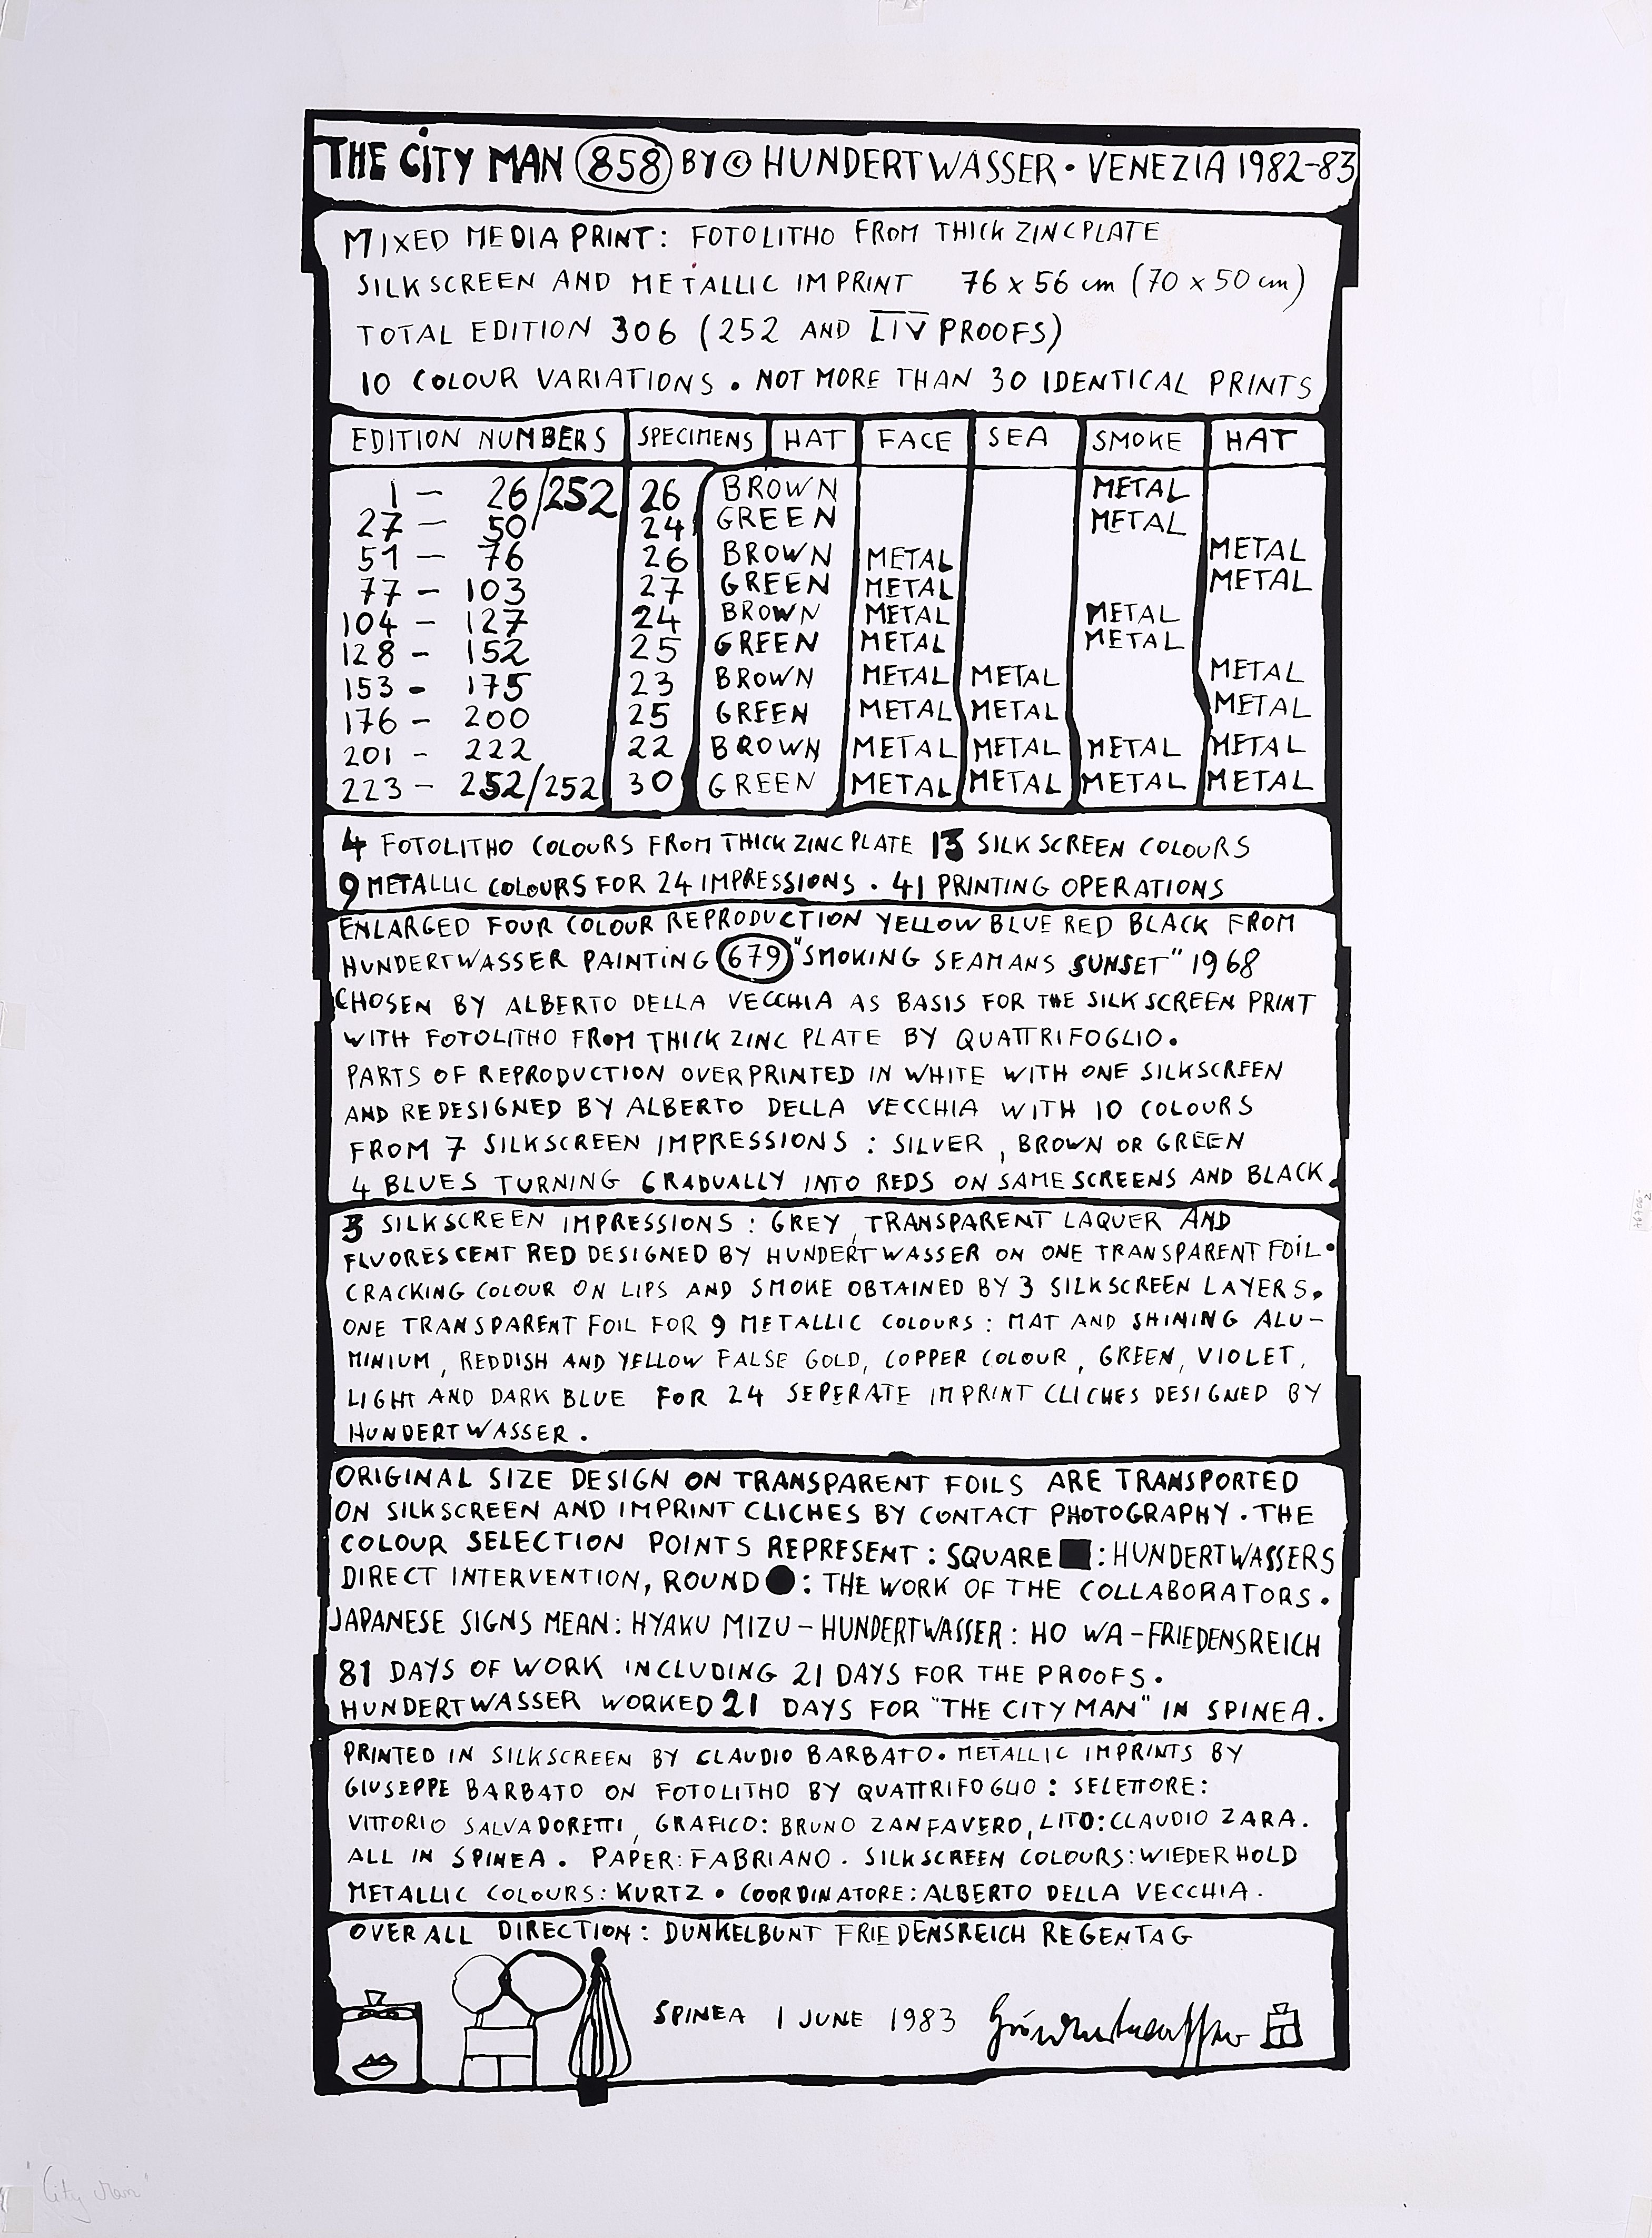 THE CITY MAN 858 BY © HUNDERTWASSER · VENEZIA 1982-83
MIXED MEDIA PRINT: FOTOLITHO FROM THICK ZINCPLATE
SILKSCREEN AND METALLIC IMPRINT 76 x 56 cm (70 x 50 cm)
TOTAL EDITION 306 (252 AND LIV PROOFS)
10 COLOUR VARIATIONS . NOT MORE THAN 30 IDENTICAL PRINTS
EDITION NUMBERS SPECIMENS HAT FACE SEA SMOKE HAT
1 - 26/252 26 BROWN METAL
27 - 50 24 GREEN METAL
51 - 76 26 BROWN METAL METAL
77 - 103 27 GREEN METAL METAL
104 - 127 24 BROWN METAL METAL
128 - 152 25 GREEN METAL METAL
153 - 175 23 BROWN METAL METAL METAL
176 - 200 25 GREEN METAL METAL METAL
201 - 222 22 BROWN METAL METAL METAL METAL
223 - 252/252 30 GREEN METAL METAL METAL METAL
4 FOTOLITHO COLOURS FROM THICK ZINCPLATE 13 SILKSCREEN COLOURS
9 METALLIC COLOURS FOR 24 IMPRESSIONS . 41 PRINTING OPERATIONS
ENLARGED FOUR COLOUR REPRODUCTION YELLOW BLUE RED BLACK FROM
HUNDERTWASSER PAINTING 679 "SMOKING SEAMANS SUNSET" 1968
CHOSEN BY ALBERTO DELLA VECCHIA AS BASIS FOR THE SILKSCREEN PRINT
WITH FOTOLITHO FROM THICK ZINC PLATE BY QUATTRIFOGLIO.
PARTS OF REPRODUCTION OVERPRINTED IN WHITE WITH ONE SILKSCREEN
AND REDESIGNED BY ALBERTO DELLA VECCHIA WITH 10 COLOURS
FROM 7 SILKSCREEN IMPRESSIONS : SILVER , BROWN OR GREEN
4 BLUES TURNING GRADUALLY INTO REDS ON SAME SCREENS AND BLACK.
3 SILKSCREEN IMPRESSIONS : GREY , TRANSPARENT LAQUER AND
FLUORESCENT RED DESIGNED BY HUNDERTWASSER ON ONE TRANSPARENT FOIL.
CRACKING COLOUR ON LIPS AND SMOKE OBTAINED BY 3 SILKSCREEN LAYERS.
ONE TRANSPARENT FOIL FOR 9 METALLIC COLOURS : MAT AND SHINING ALU-
MINIUM , REDDISH AND YELLOW FALSE GOLD, COPPER COLOUR , GREEN, VIOLET,
LIGHT AND DARK BLUE FOR 24 SEPERATE IMPRINT CLICHES DESIGNED BY
HUNDERTWASSER .
ORIGINAL SIZE DESIGN ON TRANSPARENT FOILS ARE TRANSPORTED
ON SILKSCREEN AND IMPRINT CLICHES BY CONTACT PHOTOGRAPHY . THE
COLOUR SELECTION POINTS REPRESENT : SQUARE ■ : HUNDERTWASSERS
DIRECT INTERVENTION, ROUND ● : THE WORK OF THE COLLABORATORS .
JAPANESE SIGNS MEAN : HYAKU MIZU - HUNDERTWASSER : HO WA - FRIEDENSREICH
81 DAYS OF WORK INCLUDING 21 DAYS FOR THE PROOFS .
HUNDERTWASSER WORKED 21 DAYS FOR "THE CITY MAN" IN SPINEA .
PRINTED IN SILKSCREEN BY CLAUDIO BARBATO . METALLIC IMPRINTS BY
GIUSEPPE BARBATO ON FOTOLITHO BY QUATTRIFOGLIO : SELETTORE :
VITTORIO SALVADORETTI , GRAFICO : BRUNO ZANFAVERO, LITO : CLAUDIO ZARA .
ALL IN SPINEA . PAPER : FABRIANO . SILKSCREEN COLOURS : WIEDERHOLD
METALLIC COLOURS : KURTZ . COORDINATORE : ALBERTO DELLA VECCHIA .
OVERALL DIRECTION : DUNKELBUNT FRIEDENSREICH REGENTAG
SPINEA 1 JUNE 1983 Hundertwasser
"City Man"